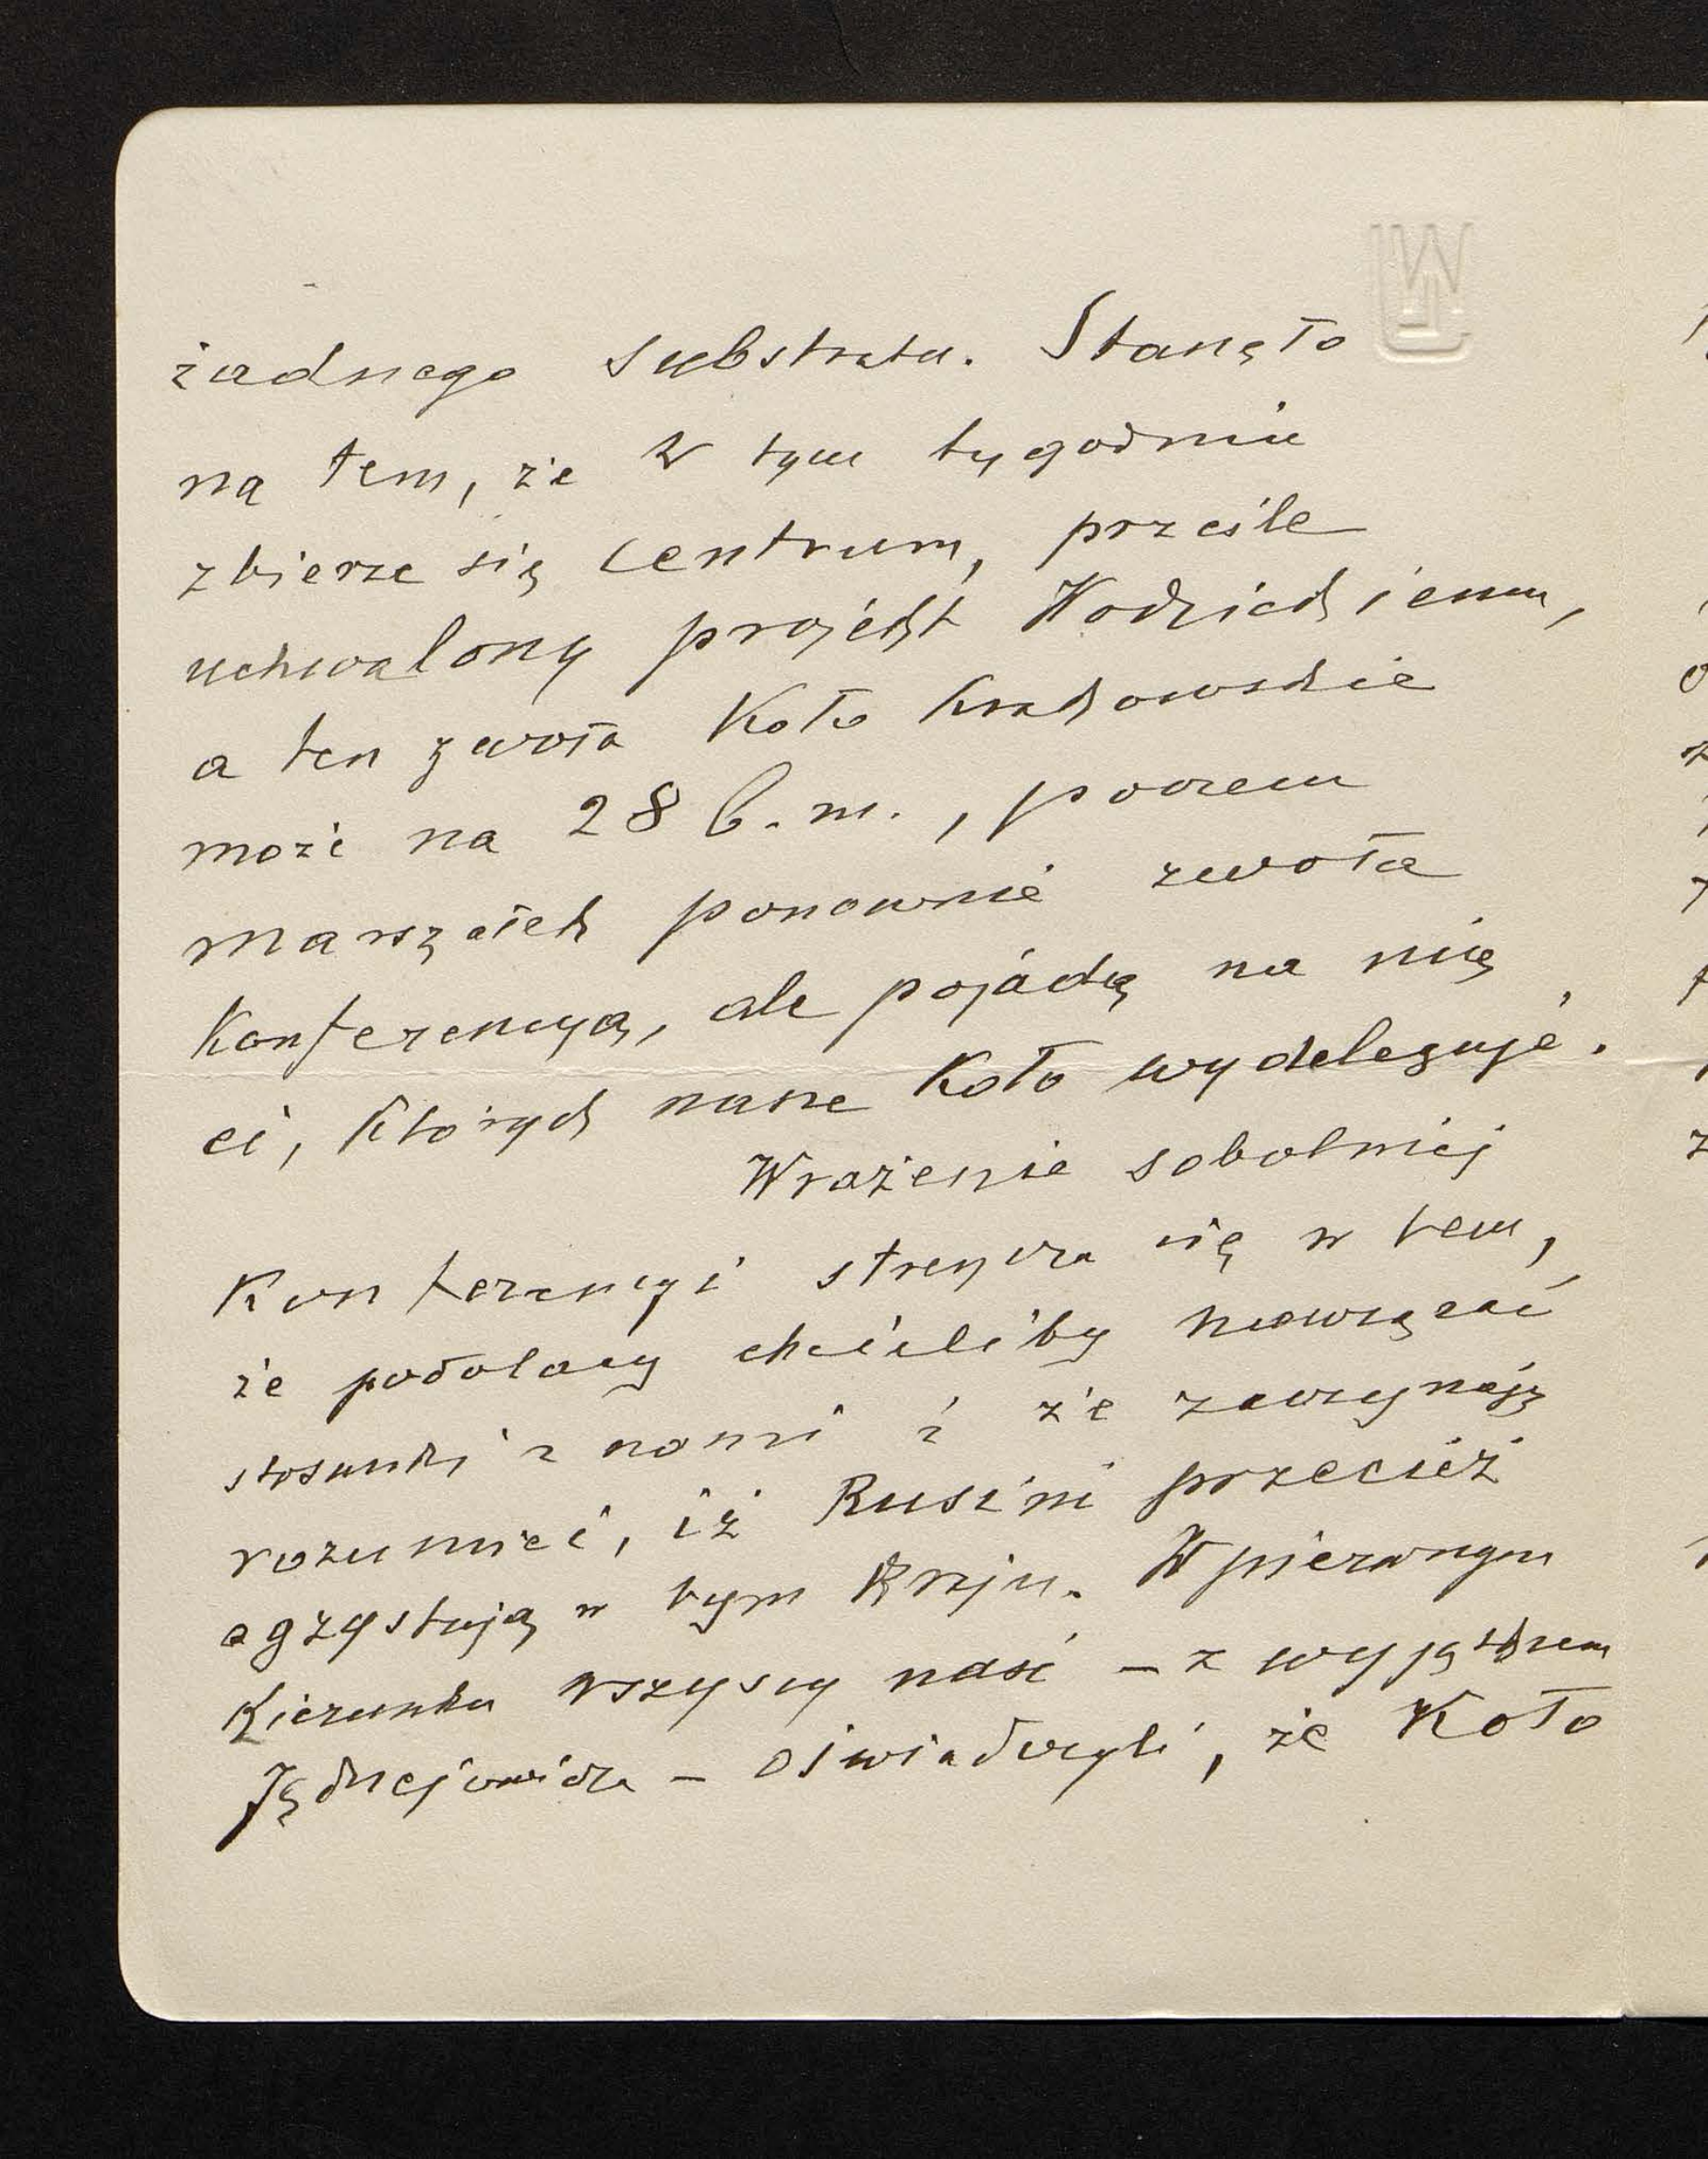 żadnego substratu. Stanęło
na tem, że w tym tygodniu
zbierze się centrum, prześle
uchwalony projekt Wodzickiemu,
a ten zwoła Koło krakowskie
może na 28 b.m., poczem
marszałek ponownie zwoła
Konferencyą, ale pojadą na nią
ci, których nasze Koło wydeleguje.
Wrażenie sobotniej
Konferencyi streszcza się w tem,
że podolacy chcieliby nawiązać
stosunki z nami i że zaczynają
rozumieć, iż Rusini przecież
egzystują w tym kraju. W pierwszym
Kierunku wszyscy nasi – z wyjątkiem
Jędrzejowicza – oświadczyli, że Koło